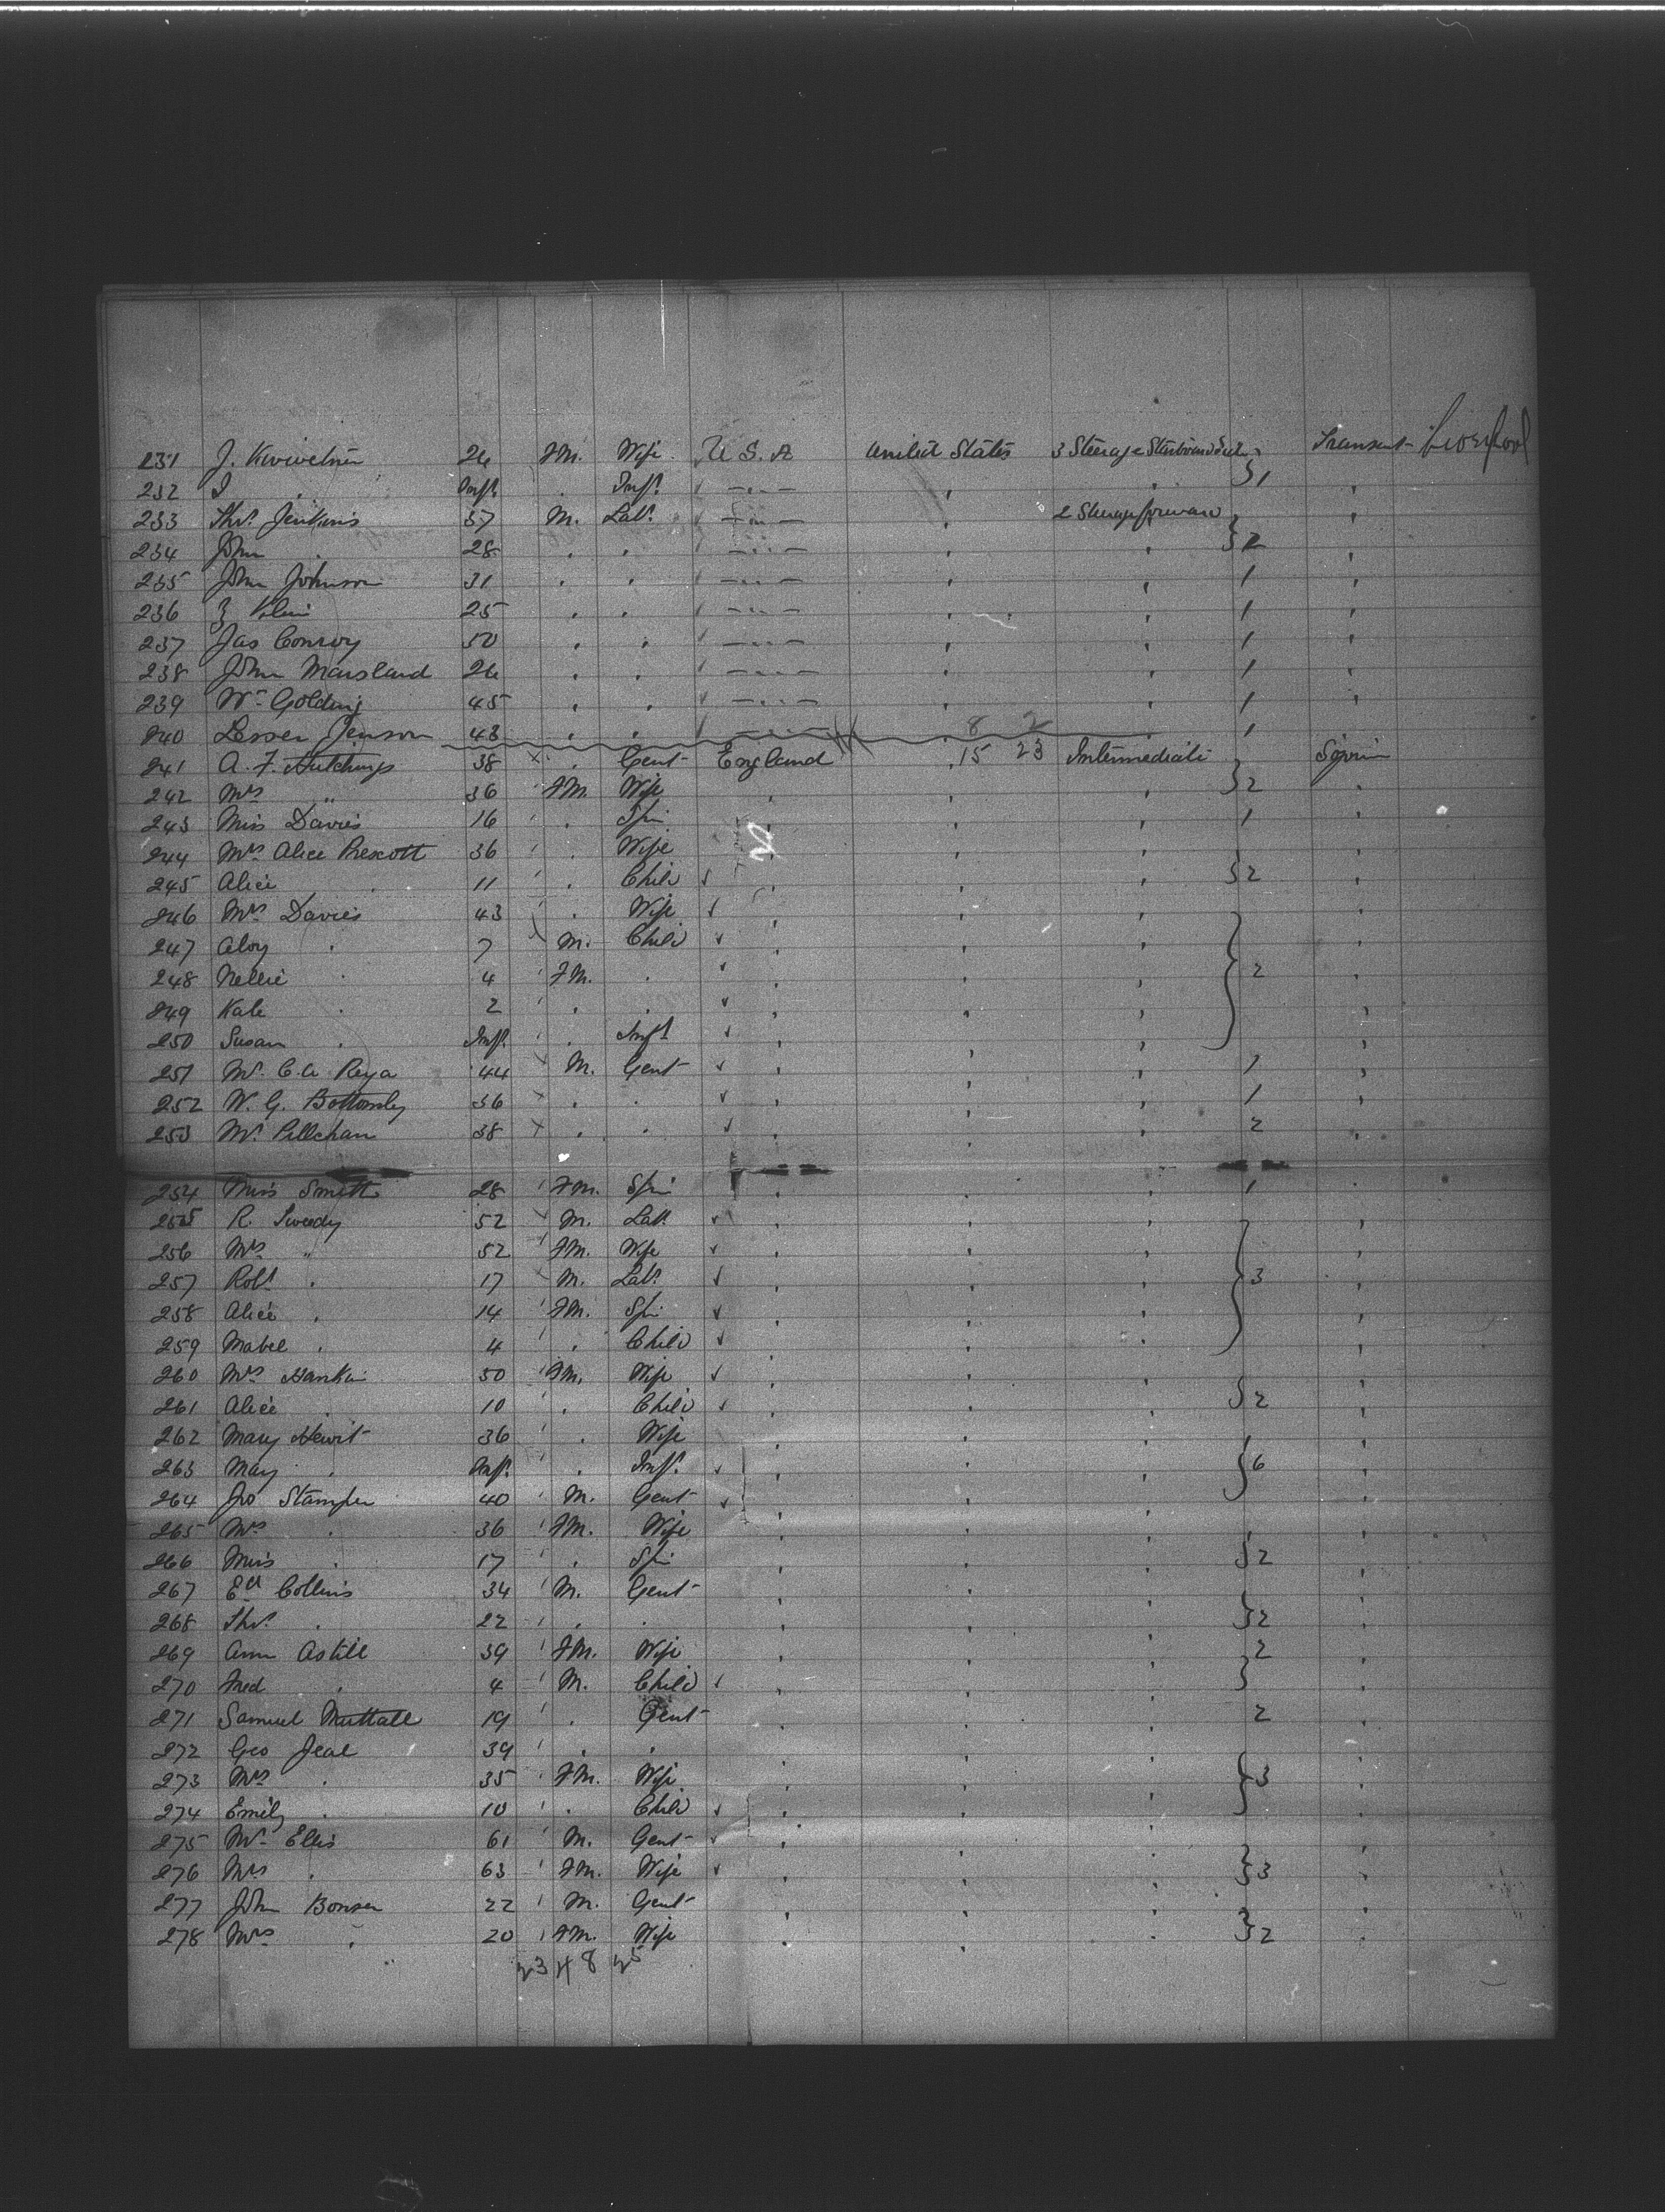 231 J. 24 FM. Wife U.S.A United States 3 Steerage Transient Liverpool
232 " Inft. " Inft. " " " } 1 "
233 Thos. Jenkins 37 M. Labr. " " 2 Steerage forward "
234 John " 28 " " " " " } 2 "
235 John Johnson 31 " " " " " 1 "
236 25 " " " " " 1 "
237 Jas Conroy 50 " " " " " 1 "
238 John Marsland 24 " " " " " 1 "
239 Wm Golding 45 " " " " " 1 "
240 Jenson 43 " " " " 8 2 " 1
241 A. F. Hutchings 38 " Gent England " 15 23 Intermediate
242 Mrs " 36 FM. Wife " " " } 2 "
243 Miss Davies 16 " Spin " " " 1 "
244 Mrs Alice Prescott 36 " Wife " " " "
245 Alice " 11 " Child " " " } 2 "
246 Mrs Davies 43 " Wife " " " "
247 Aloy " 7 M. Child " " " "
248 Nellie " 4 FM. " " " " } 2 "
249 Kate " 2 " " " " " "
250 Susan " Inft. " Inft " " " "
251 Mr. C. A 44 M. Gent " " " 1 "
252 W. G. Bottomley 36 " " " " " 1 "
253 Mr. 38 " " " " " 2 "
254 Miss Smith 28 FM. Spin " " " 1 "
255 R. 52 M. Labr. " " " "
256 Mrs " 52 FM. Wife " " " "
257 Robt. " 17 M. Labr. " " " } 3 "
258 Alice " 14 FM. Spin " " " "
259 Mabel " 4 " Child " " " "
260 Mrs 50 FM. Wife " " " "
261 Alice " 10 " Child " " " } 2 "
262 Mary Hewit 36 " Wife " " " "
263 May " Inft. " Inft. " " " } 6 "
264 Jno Stamper 40 M. Gent " " " "
265 Mrs " 36 FM. Wife " " " "
266 Miss " 17 " Spin " " " } 2 "
267 Ed Collins 34 M. Gent " " " "
268 Thos. " 22 " " " " " } 2 "
269 Ann Astill 39 FM. Wife " " " 2 "
270 Fred " 4 M. Child " " " } "
271 Samuel Nuttall 19 " Gent " " " 2 "
272 Geo Jeal 39 " " " " " "
273 Mrs " 35 FM. Wife " " " } 3 "
274 Emily " 10 " Child " " " "
275 Mr Ellis 61 M. Gent " " " "
276 Mrs " 63 FM. Wife " " " } 3 "
277 John Bonser 22 M. Gent " " " "
278 Mrs " 20 FM. Wife " " " } 2 "